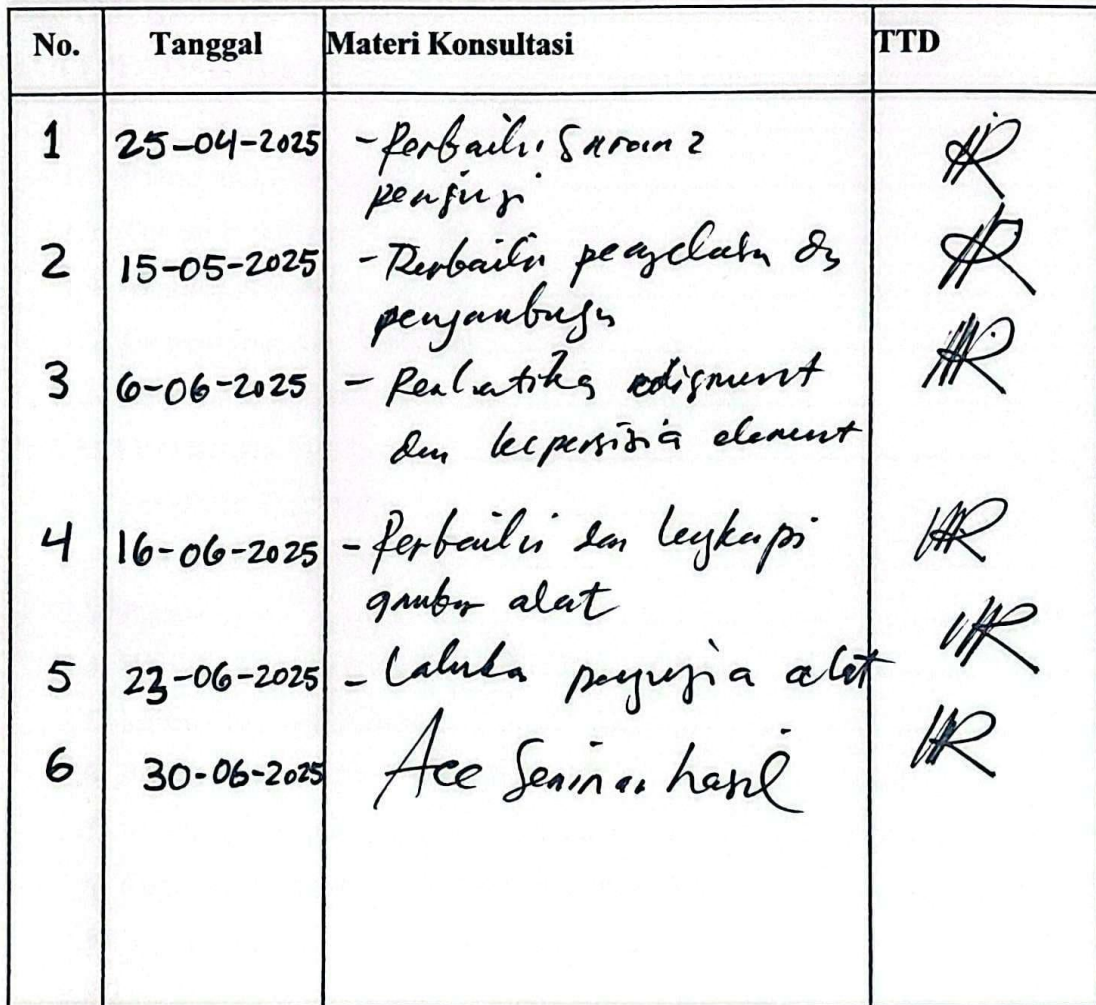 No. Tanggal Materi Konsultasi TTD
1 25-04-2025 - Perbaiki Saran2
penguji
2 15-05-2025 - Perbaiki pengelasan dan
penyambungan
3 6-06-2025 - alignment
dan kepresisian element
4 16-06-2025 - Perbaiki dan lengkapi
gambar alat
5 23-06-2025 - Lakukan pengujian alat
6 30-06-2025 Acc Seminar hasil